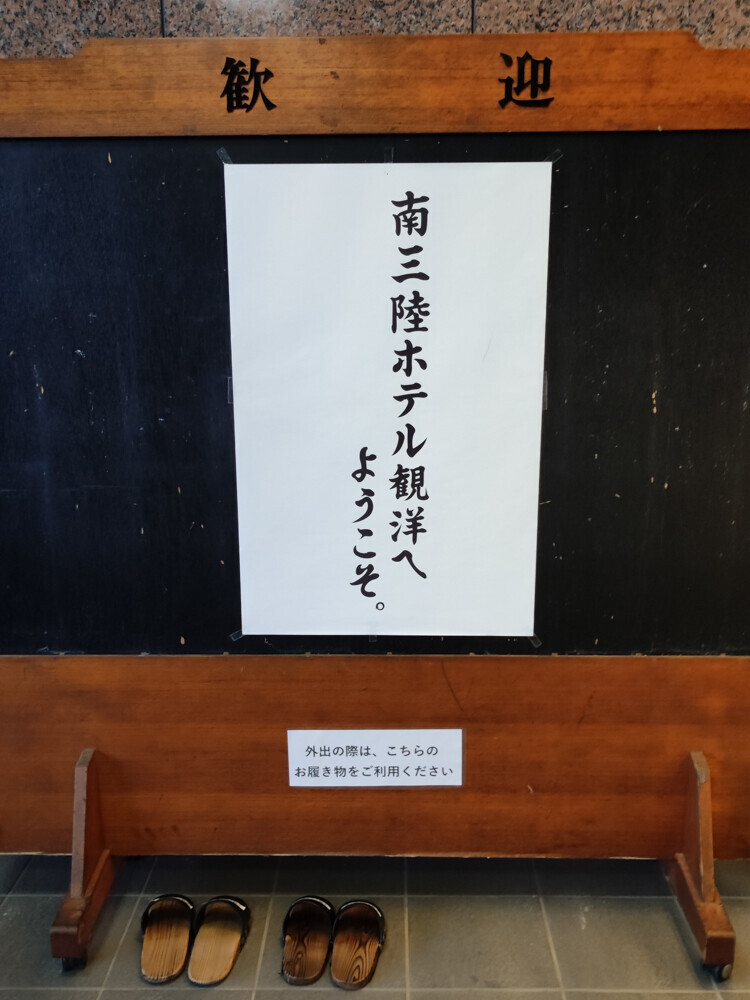 歓迎
南三陸ホテル観洋へ
ようこそ。
外出の際は、こちらの
お履き物をご利用ください